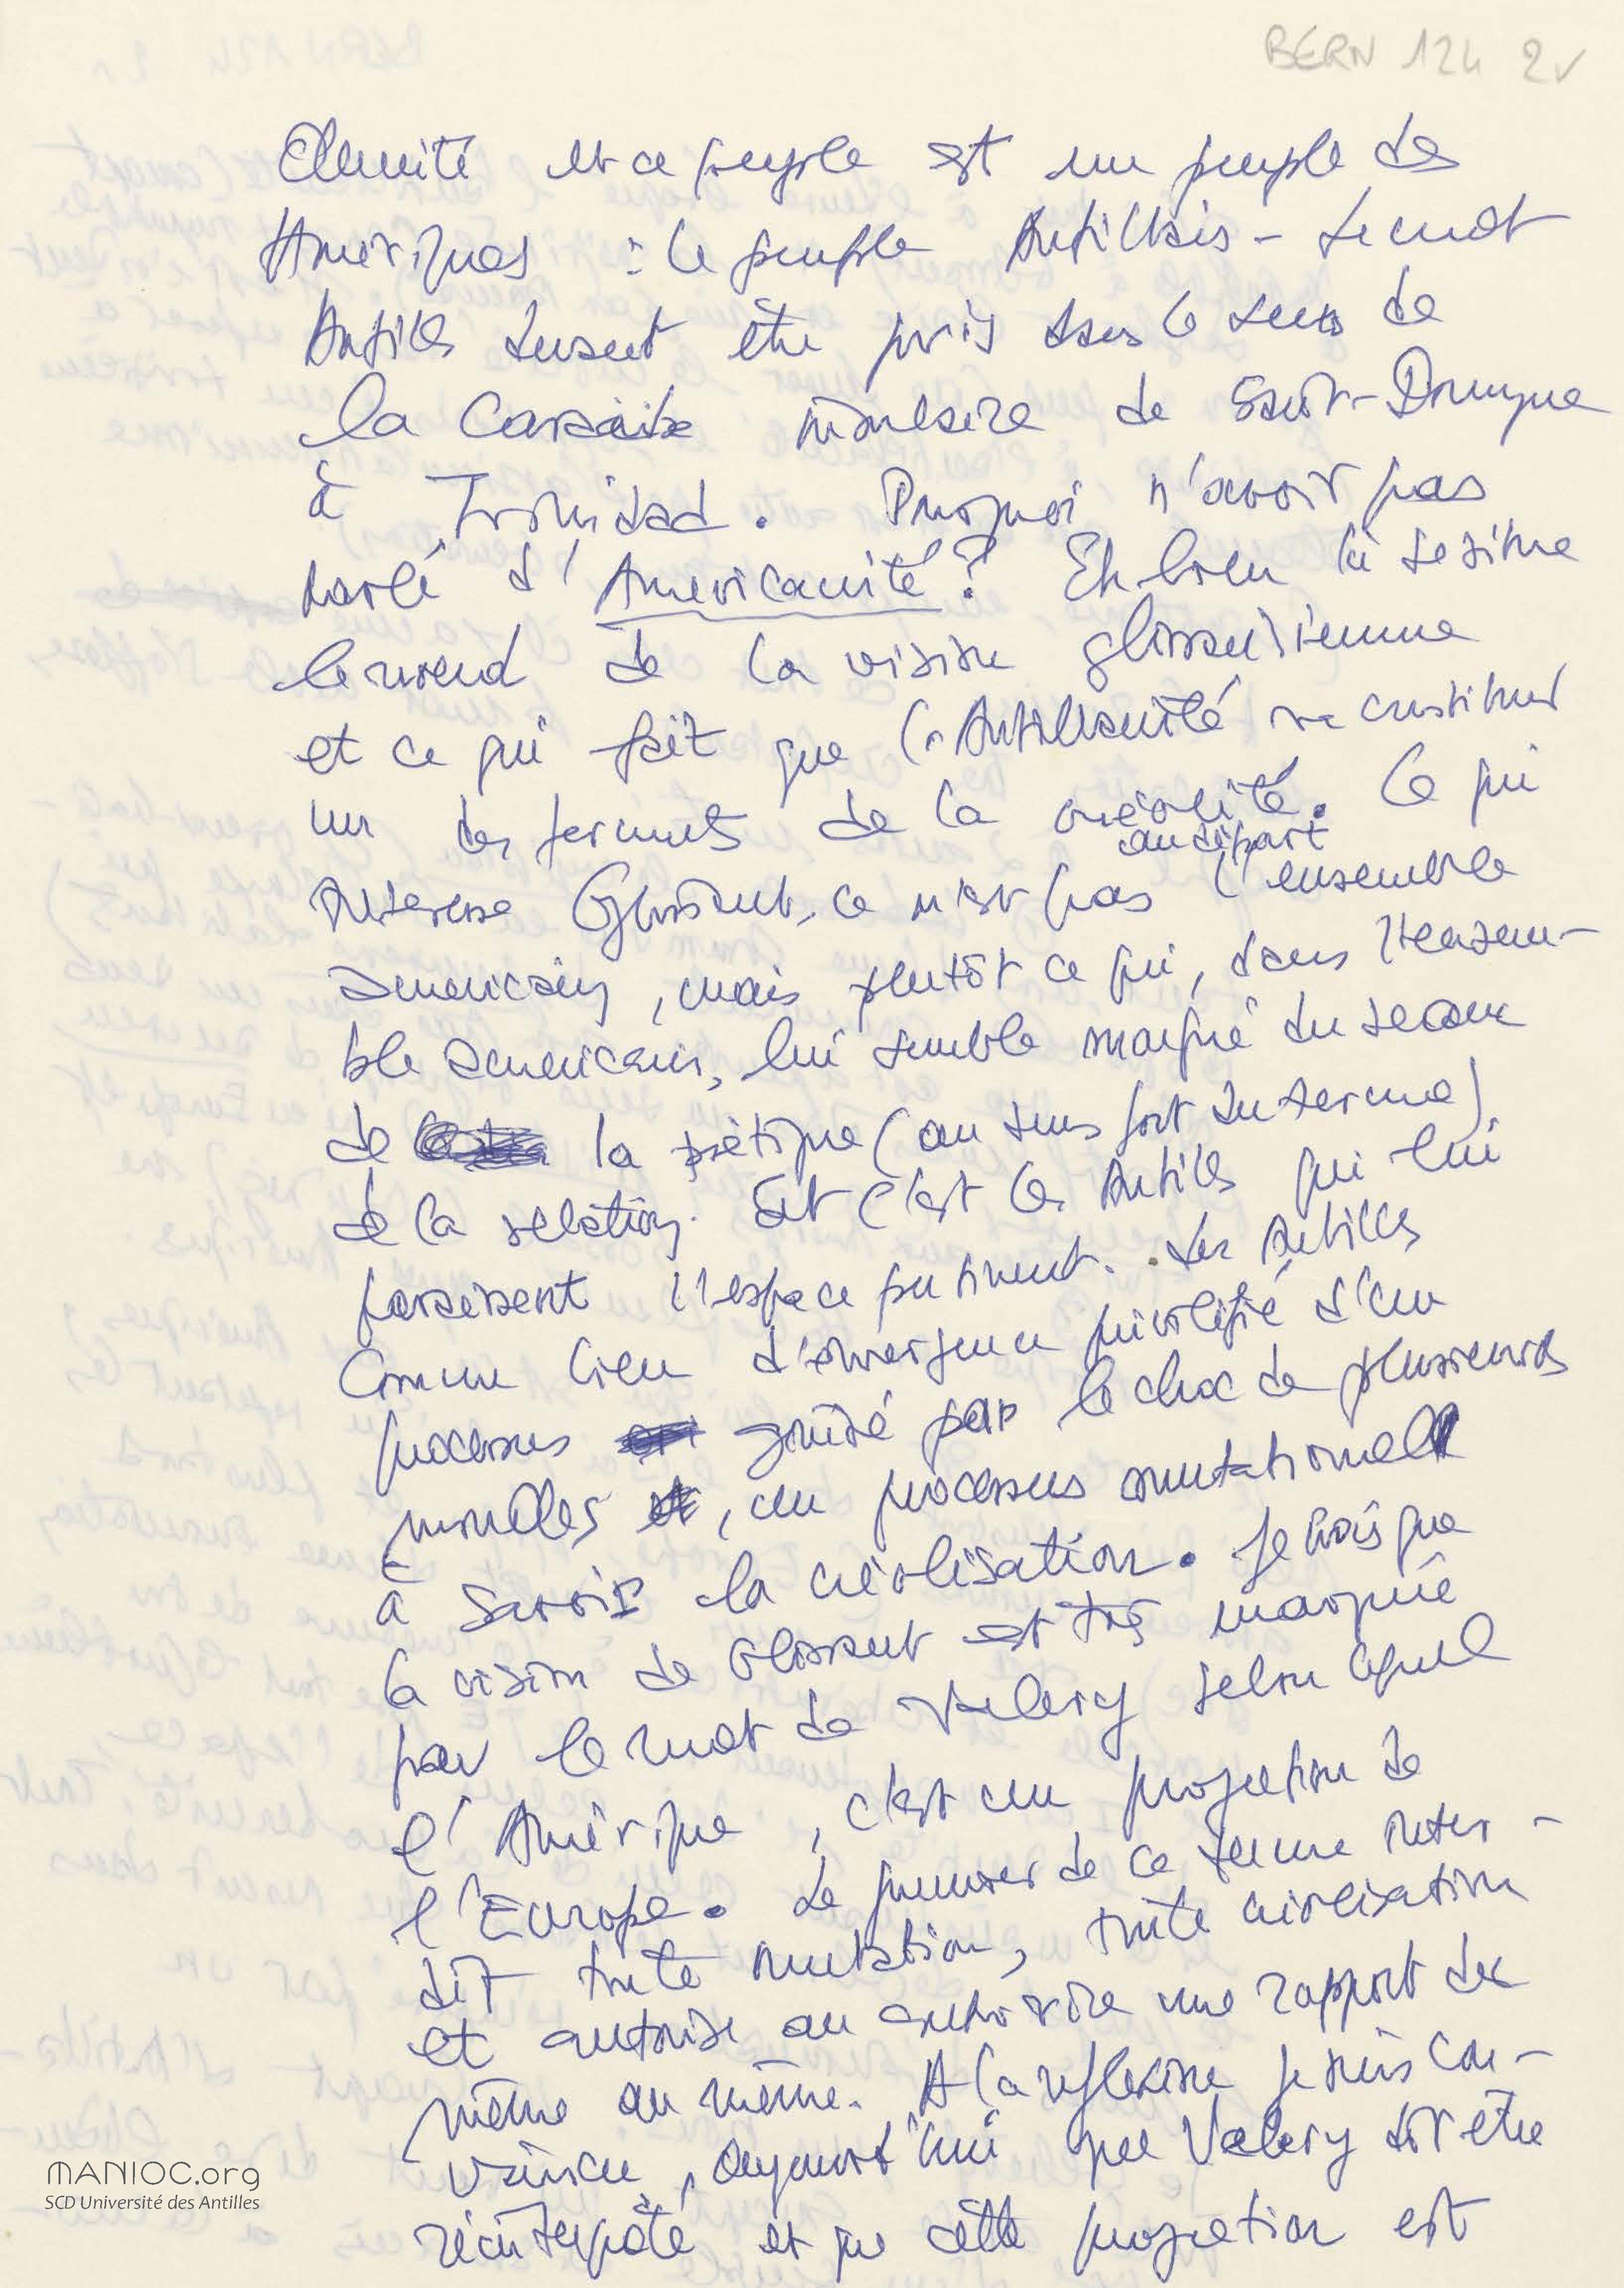 BERN 124 2v
et ce peuple est un peuple des
Amériques : le peuple Antillais - Le mot
Antilles devant être pris dans le sens de
la Caraïbe insulaire de Saint-Domingue
à Trinidad. Pourquoi n'avoir pas
parlé d'Américanité ? Eh bien là se situe
le nœud de la vision glissantienne
et ce qui fait que l'Antillanité va constituer
un des ferments de la créolité. Ce qui
au départ
intéresse Glissant, ce n'est pas l'ensemble
américain, mais plutôt ce qui, dans l'ensem-
ble américain, lui semble marqué du sceau
de la poétique (au sens fort du terme)
de la relation. Et c'est les Antilles qui lui
paraissent l'espace pertinent. Les Antilles
comme lieu d'émergence privilégié d'un
processus généré par le choc de plusieurs
mondes, un processus mutationnel
à savoir la créolisation. Je crois que
la vision de Glissant est très marquée
par le mot de Valery selon lequel
l'Amérique, c'est un projection de
l'Europe. Le premier de ce terme inter-
dit toute mutation, toute créolisation
et autorise au contraire une rapport du
même au même. A la réflexion je suis con-
vaincu, aujourd'hui que Valery doit être
réinterprété et que cette projection est
MANIOC.org
SCD Université des Antilles